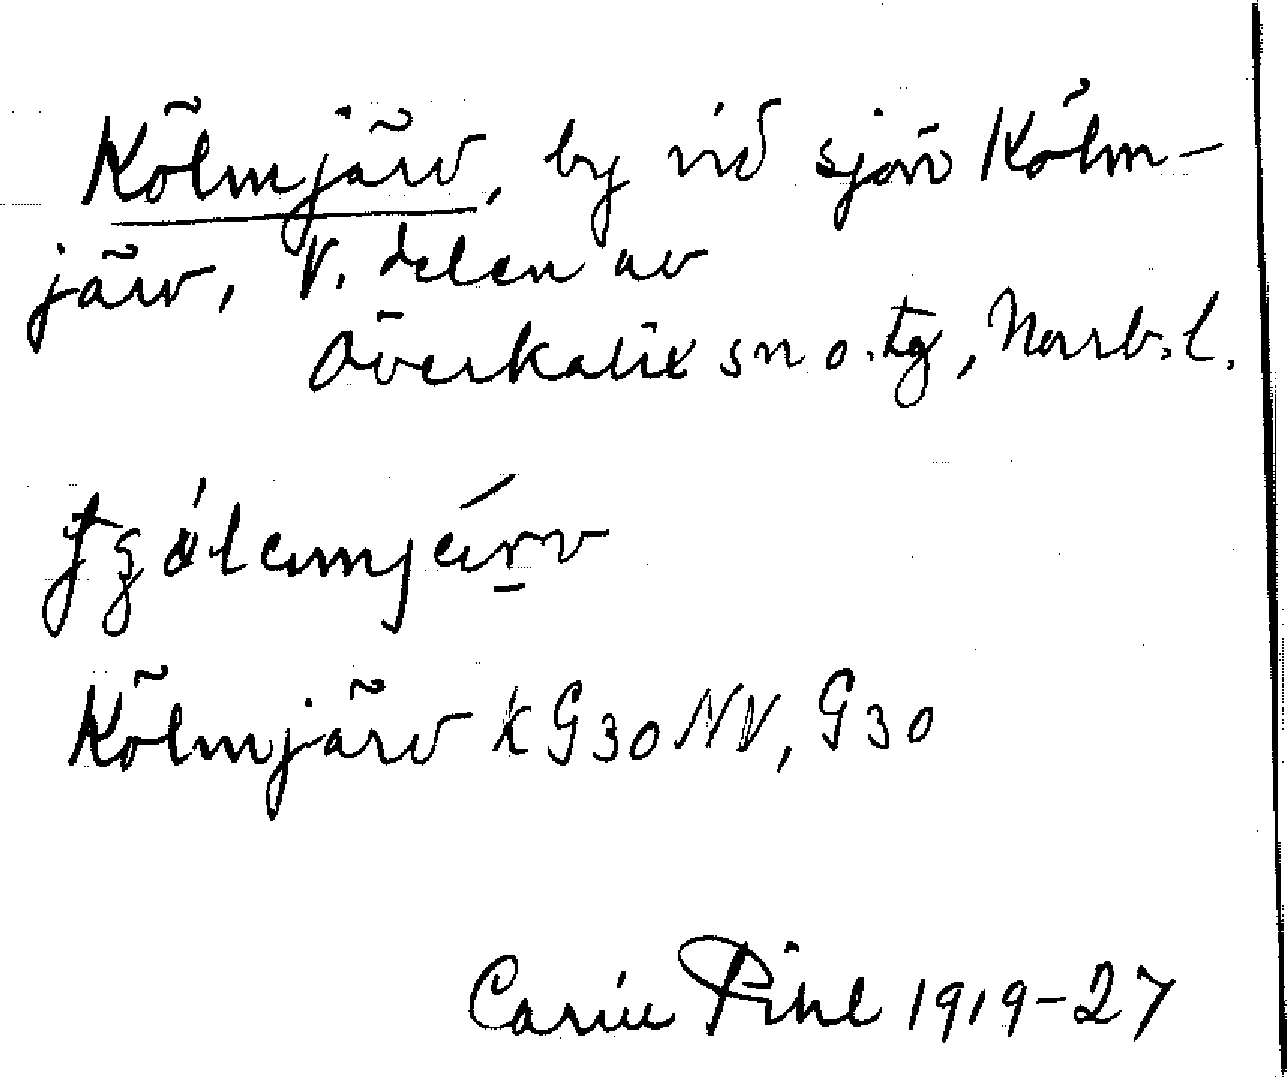 Kölmjärv, by vid sjön Kölm-
järv, V. delen av
Överkalix sn o. tg, Norrb. l.
Kölmjärv k G30 NV, G30
Carin Pihl 1919-27